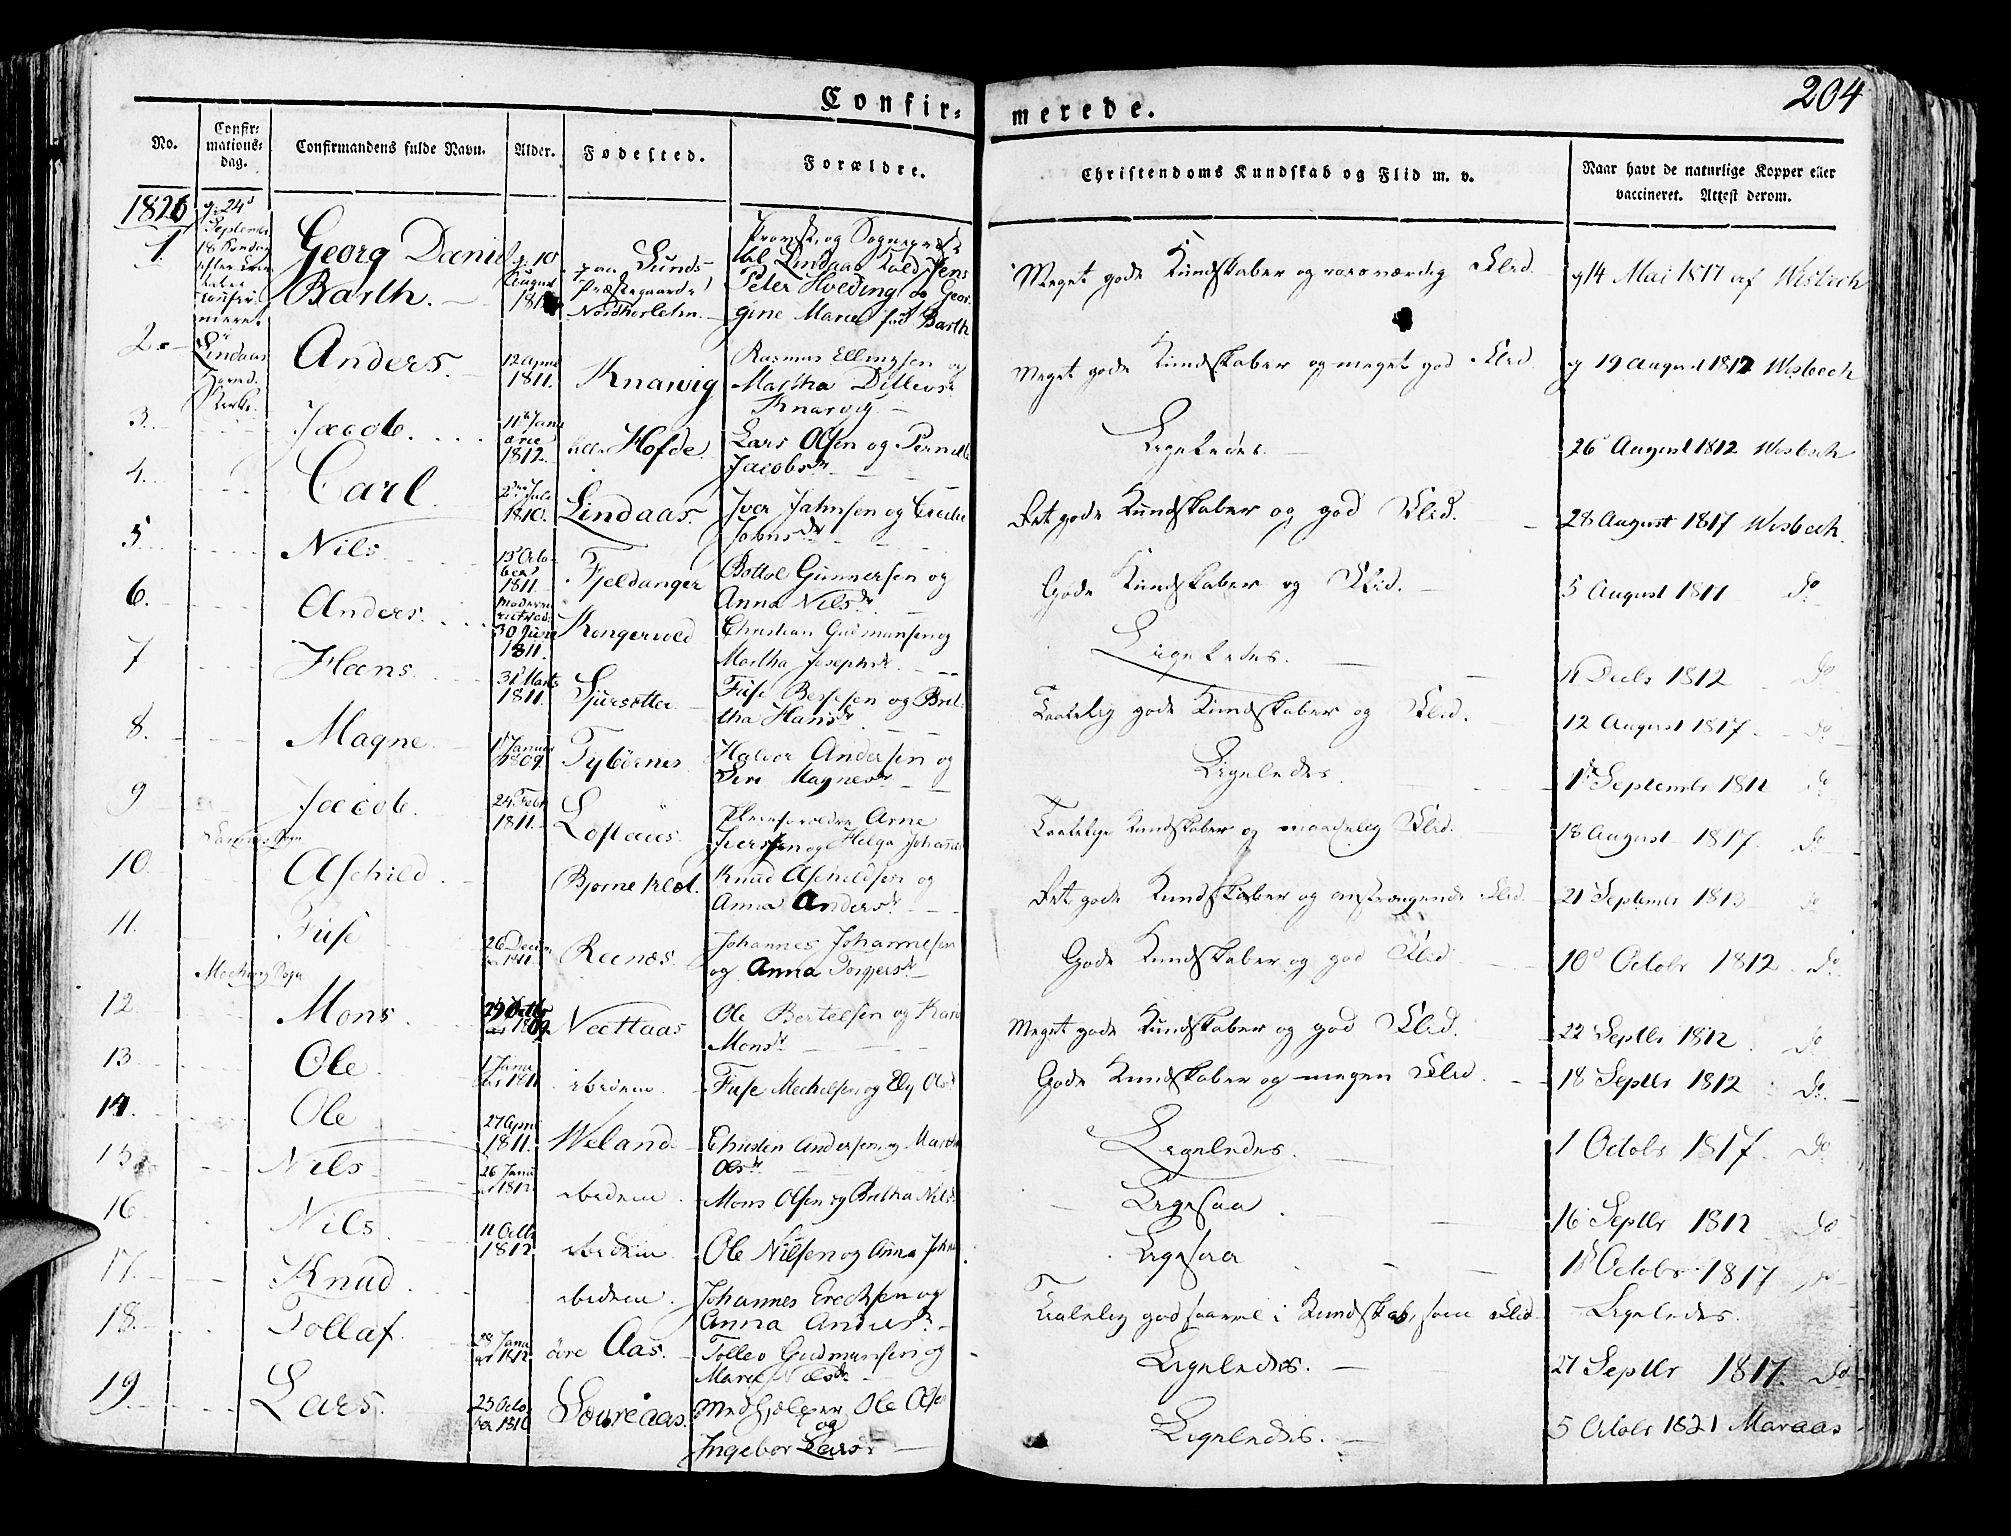 Confir=
merede.
204
No.
Confir=
mations=
dag.
Confirmandens fulde Navn.
Alder.
Fødested.
Forældre.
Christendoms Kundskab og Flid m. v.
Naar havt de naturlige Kopper eller
vaccineret. Attest derom.
1826
1. Georg Daniel
Barth.
Lunds-
Præstegaard
Nordhorlehn
Provst og Sognepræst
til Lindaas Kald Jens
Peter Hveding og Geor-
gine Marie Barth
Meget gode Kundskaber og roesværdig Flid.
14 Mai 1817 af Wisbech
Lindaas
2. Anders. 12 April
1811. Knarvig
Rasmus Ellingsen og
Martha
Knarvig
Meget gode Kundskaber og meget god Flid.
19 August 1812 Wisbech
3. Jacob. 11 Janu
arie
1812. Hofde.
Lars Olsen og Pernille
Jacobsdr
Ligeledes.
26 August 1812 Wisbech
4. Carl. Juli
1810. Lindaas.
Iver Jahnsen og
Johnsdr
Det gode Kundskaber og god Flid.
28 August 1817 Wisbech.
5. Nils 15 Octo-
ber
1811 Fjeldanger
Bottol Gunnersen og
Anna Nilsdr
Gode Kundskaber og Flid.
5 August 1811 do
6. Anders.
30 Juni
1811. Kongervold
Christian Gudmunsen og
Martha Josephsdr
Ligeledes.
11 Decbr 1812 do
7 Hans 31 Marts
1811. Sjursætter
Fusse og Brit-
tha Hansdr
Taalelig gode Kundskaber og Flid.
12 August 1817. do
8. Magne. Januar
1809. Tybörnes
Halvor Andersen og
Siri Magnesdr
Ligeledes
Septembr 1811 do
9 Jacob. 24 Febr
1811. Loftaas.
Pleieforældre Arne
Iversen og Helga Johannes
Taalelige Kundskaber og maadelig Flid.
18 August 1817. do
10. Aschild. Bjørne
Knud Aschildsen og
Anna Andersdr
Det gode Kundskaber og anstrængende Flid
21 September 1813 do
11. Fuse 26 Decem
1811. Risnæs.
Johannes Johannesen
og Anna Torgersdr
Gode Kundskaber og god Flid
10 Octobr 1812 do
12. Mons 29 Octbr
1809. Nættaas
Ole Bertelsen og Kari
Monsdr
Meget gode Kundskaber og god Flid.
22 Septbr 1812 do
13. Ole 1 Janu
1811. ibidem.
Fuse Mechelsen og Ely Olsdr
Gode Kundskaber og megen Flid.
18 Septbr 1812 do.
14. Ole 27 April
1811. Weland
Christen Andersen og Martha
Olsdr
Ligeledes.
1 Octobr 1817. do
15. Nils 26 Janu
1812. ibidem.
Mons Olsen og Britha Nils
Ligesaa
16 Septbr 1812 do
16. Nils 11 Octbr
1812 ibidem
Ole Nilsen og Anna Johns
Ligesaa
Octobr 1817 do
17. Knud ibidem.
Johannes Erichsen og
Anna Andersdr
Taalelig god saavel i Kundskab, som Flid
Ligeledes.
18. Tollaf. Janu
1812 øvre Aas.
Tollev Gudmunsen og
Marie Nilsdr
Ligeledes.
27 Septbr 1817. do
19. Lars. 25 Octo
ber 1810
Medhjelper Ole Olsen
og
Ingebor Larsdr
Ligeledes.
5 Octobr 1821 Maraas